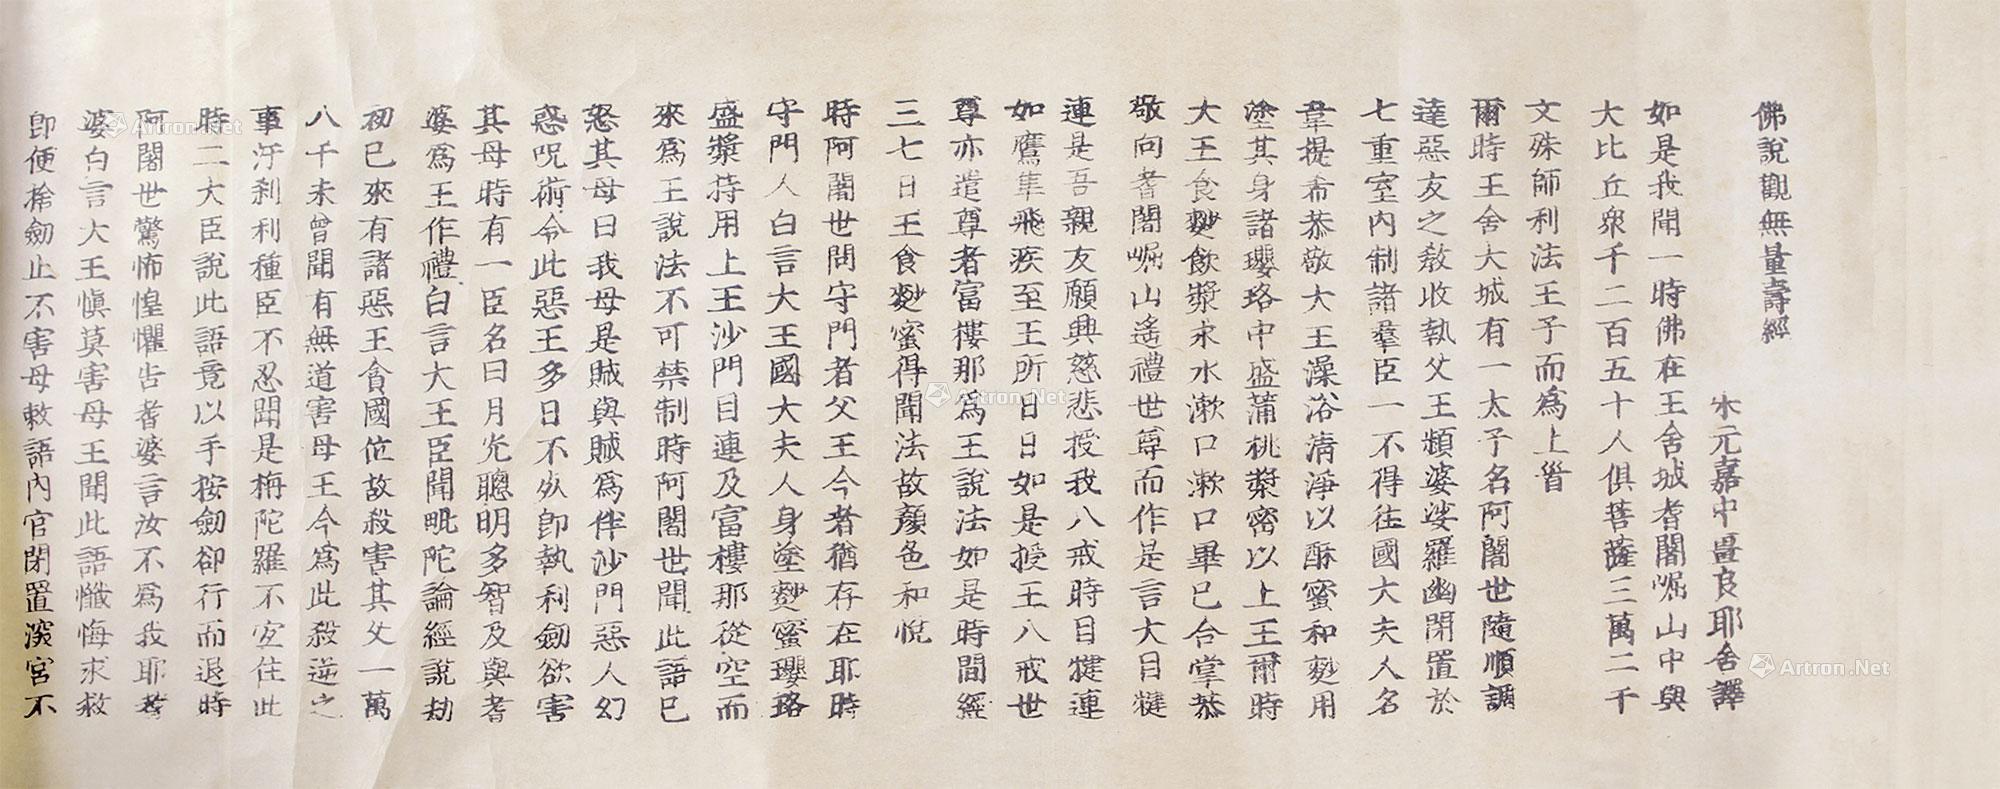 佛說觀無量壽經
宋元嘉中畺良耶舍譯
如是我聞一時佛在王舍城耆闍崛山中與
大比丘衆千二百五十人俱菩薩三萬二千
文殊師利法王子而為上首
爾時王舍大城有一太子名阿闍世隨順調
達惡友之教收執父王頻婆娑羅幽閉置於
七重室內制諸羣臣一不得往國大夫人名
韋提希恭敬大王澡浴清淨以酥蜜和麨用
塗其身諸瓔珞中盛蒲桃漿密以上王爾時
大王食麨飲漿求水漱口漱口畢已合掌恭
敬向耆闍崛山遙禮世尊而作是言大目犍
連是吾親友願興慈悲授我八戒時目犍連
如鷹隼飛疾至王所日日如是授王八戒世
尊亦遣尊者富樓那為王說法如是時間經
三七日王食麨蜜得聞法故顏色和悅
時阿闍世問守門者父王今者猶存在耶時
守門人白言大王國大夫人身塗麨蜜瓔珞
盛漿持用上王沙門目連及富樓那從空而
來為王說法不可禁制時阿闍世聞此語已
怒其母曰我母是賊與賊為伴沙門惡人幻
惑呪術令此惡王多日不死即執利劒欲害
其母時有一臣名曰月光聰明多智及與耆
婆為王作禮白言大王臣聞毗陀論經說劫
初已來有諸惡王貪國位故殺害其父一萬
八千未曾聞有無道害母王今為此殺逆之
事汙剎利種臣不忍聞是栴陀羅不宜住此
時二大臣說此語竟以手按劒卻行而退時
阿闍世驚怖惶懼告耆婆言汝不為我耶耆
婆白言大王慎莫害母王聞此語懺悔求救
即便捨劒止不害母敕語內官閉置深宮不
Artron.Net
Artron.Net
Artron.Net